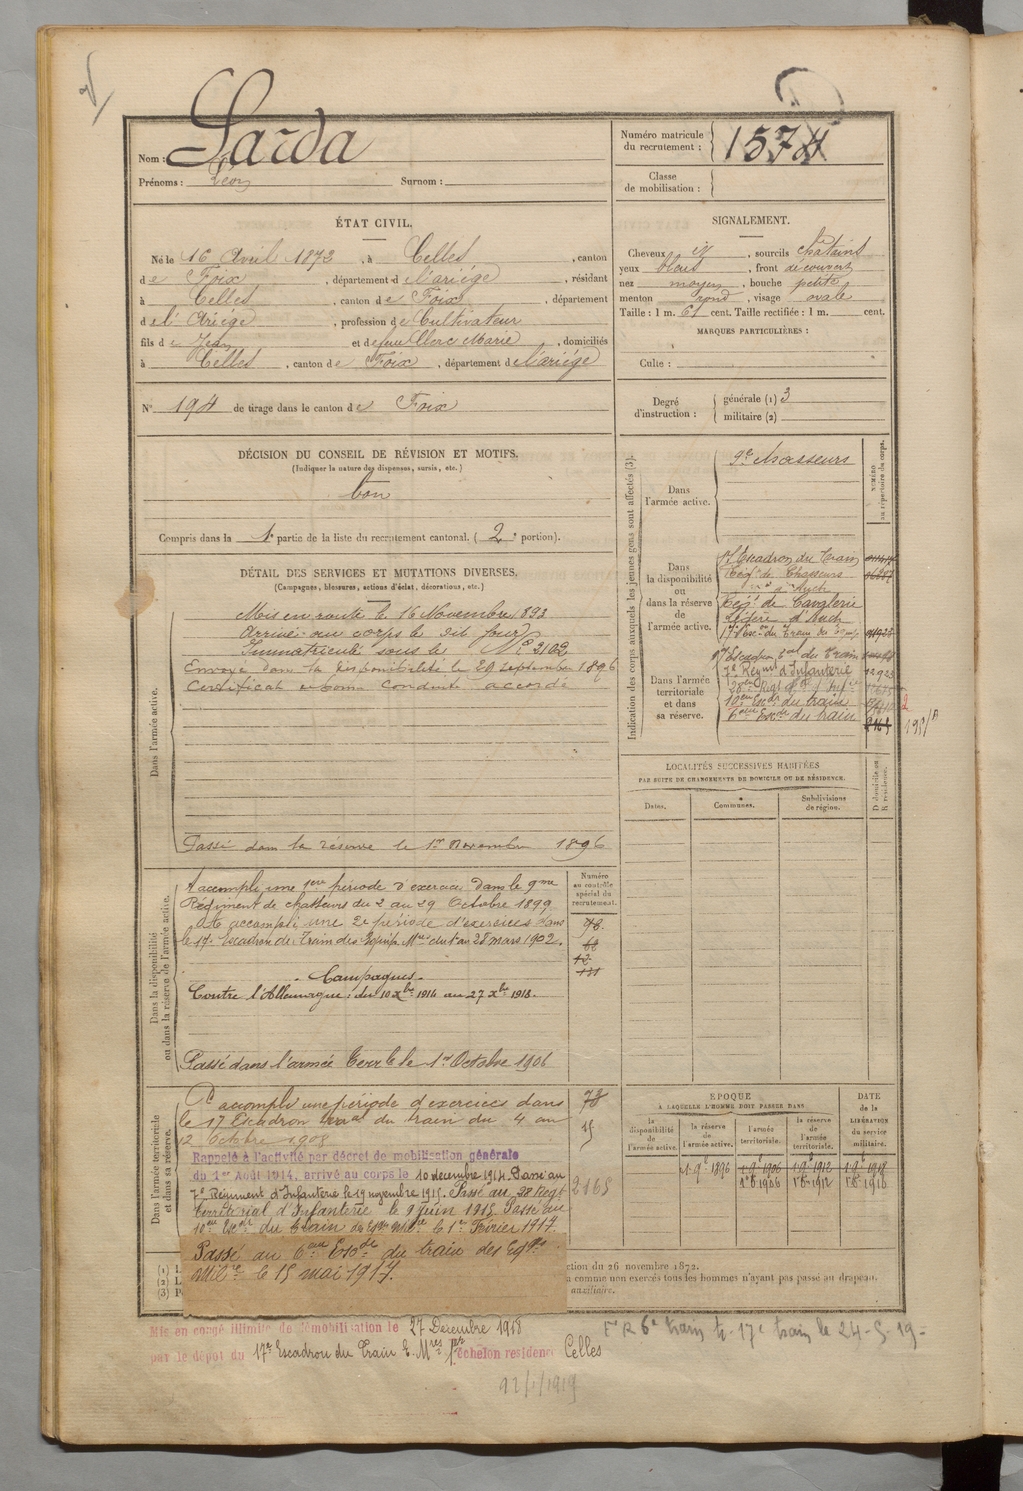 Nom : Larda
Prénoms : Léon Surnom :
Numéro matricule du recrutement : 1574
Classe de mobilisation :
ÉTAT CIVIL.
Né le 16 Avril 1872, à Celles, canton
de Foix, département de l'ariége, résidant
à Celles, canton de Foix, département
de l'Ariége, profession de Cultivateur
fils de Jean et de feue Clerc Marie, domiciliés
à Celles, canton de Foix, département de l'ariége
N° 194 de tirage dans le canton de Foix
SIGNALEMENT.
Cheveux id, sourcils chatains
yeux bleus, front découvert
nez moyen, bouche petite
menton rond, visage ovale
Taille : 1 m. 61 cent. Taille rectifiée : 1 m. cent.
MARQUES PARTICULIÈRES :
Culte :
Degré d'instruction : générale (1) 3
militaire (2)
DÉCISION DU CONSEIL DE RÉVISION ET MOTIFS.
(Indiquer la nature des dispenses, sursis, etc.)
bon
Compris dans la 1e partie de la liste du recrutement cantonal. (2e portion).
DÉTAIL DES SERVICES ET MUTATIONS DIVERSES.
(Campagnes, blessures, actions d'éclat, décorations, etc.)
Dans l'armée active.
Mis en route le 16 Novembre 1893
Arrivé au corps le dit jour
Immatriculé sous le N° 3102
Envoyé dans la disponibilité le 29 septembre 1896
Certificat de bonne conduite accordé
Passé dans la réserve le 1er Novembre 1896
Dans la disponibilité ou dans la réserve de l'armée active.
A accompli une 1ere période d'exercices dans le 9me
Régiment de chasseurs du 2 au 29 Octobre 1899
a accompli une 2e période d'exercices dans
le 17e Escadron du Train des Equip. Mres du 1 au 28 mars 1902.
- Campagnes -
Contre l'Allemagne : du 10 Xbre 1914 au 27 Xbre 1918.
Passé dans l'armée Terr le 1er Octobre 1906
Numéro au contrôle spécial du recrutement.
78
68
12
Dans l'armée territoriale et dans sa réserve.
A accompli une période d'exercices dans
le 17 Escadron du train du 4 au
12 Octobre 1908
Rappelé à l'activité par décret de mobilisation générale
du 1er Août 1914, arrivé au corps le 10 décembre 1914. Passé au
7e Régiment d'Infanterie le 19 novembre 1915. Passé au 28 Regt
territorial d'Infanterie le 9 juin 1915. Passé au
10eme Escon du train des Eqges le 1er Février 1917.
Passé au 6eme Escon du train des Eqges
Milres le 15 mai 1917.
78
15
2165
Indication des corps auxquels les jeunes gens sont affectés (3).
NUMÉRO au répertoire du corps.
Dans l'armée active.
9e chasseurs
Dans la disponibilité ou dans la réserve de l'armée active.
17 Escadron du Train
Régt de Chasseurs
Régt de Cavalerie
Légère d'Auch
17e Escon du Train des
Dans l'armée territoriale et dans sa réserve.
17 Escadron du Train
7e Régint d'Infanterie
10eme Escon du train
6eme Escon du train
2165
LOCALITÉS SUCCESSIVES HABITÉES
PAR SUITE DE CHANGEMENTS DE DOMICILE OU DE RÉSIDENCE.
Dates. Communes. Subdivisions de région. D domicile ou R résidence.
ÉPOQUE
À LAQUELLE L'HOMME DOIT PASSER DANS
la disponibilité de l'armée active.
la réserve de l'armée active.
l'armée territoriale.
la réserve de l'armée territoriale.
DATE de la LIBÉRATION du service militaire.
1.9e 1896 1.9e 1906 1.9e 1912 1.9e 1918
1.8e 1906 1.8e 1912 1.8e 1918
(1)
(2)
(3)
ction du 26 novembre 1872.
comme non exercés tous les hommes n'ayant pas passé au drapeau.
auxiliaire.
Mis en congé illimité de démobilisation le 27 Décembre 1918
par le dépôt du 17e Escadron du Train E. Mres 1er échelon residence Celles
6e train tr. 17e train le 24-5-19-